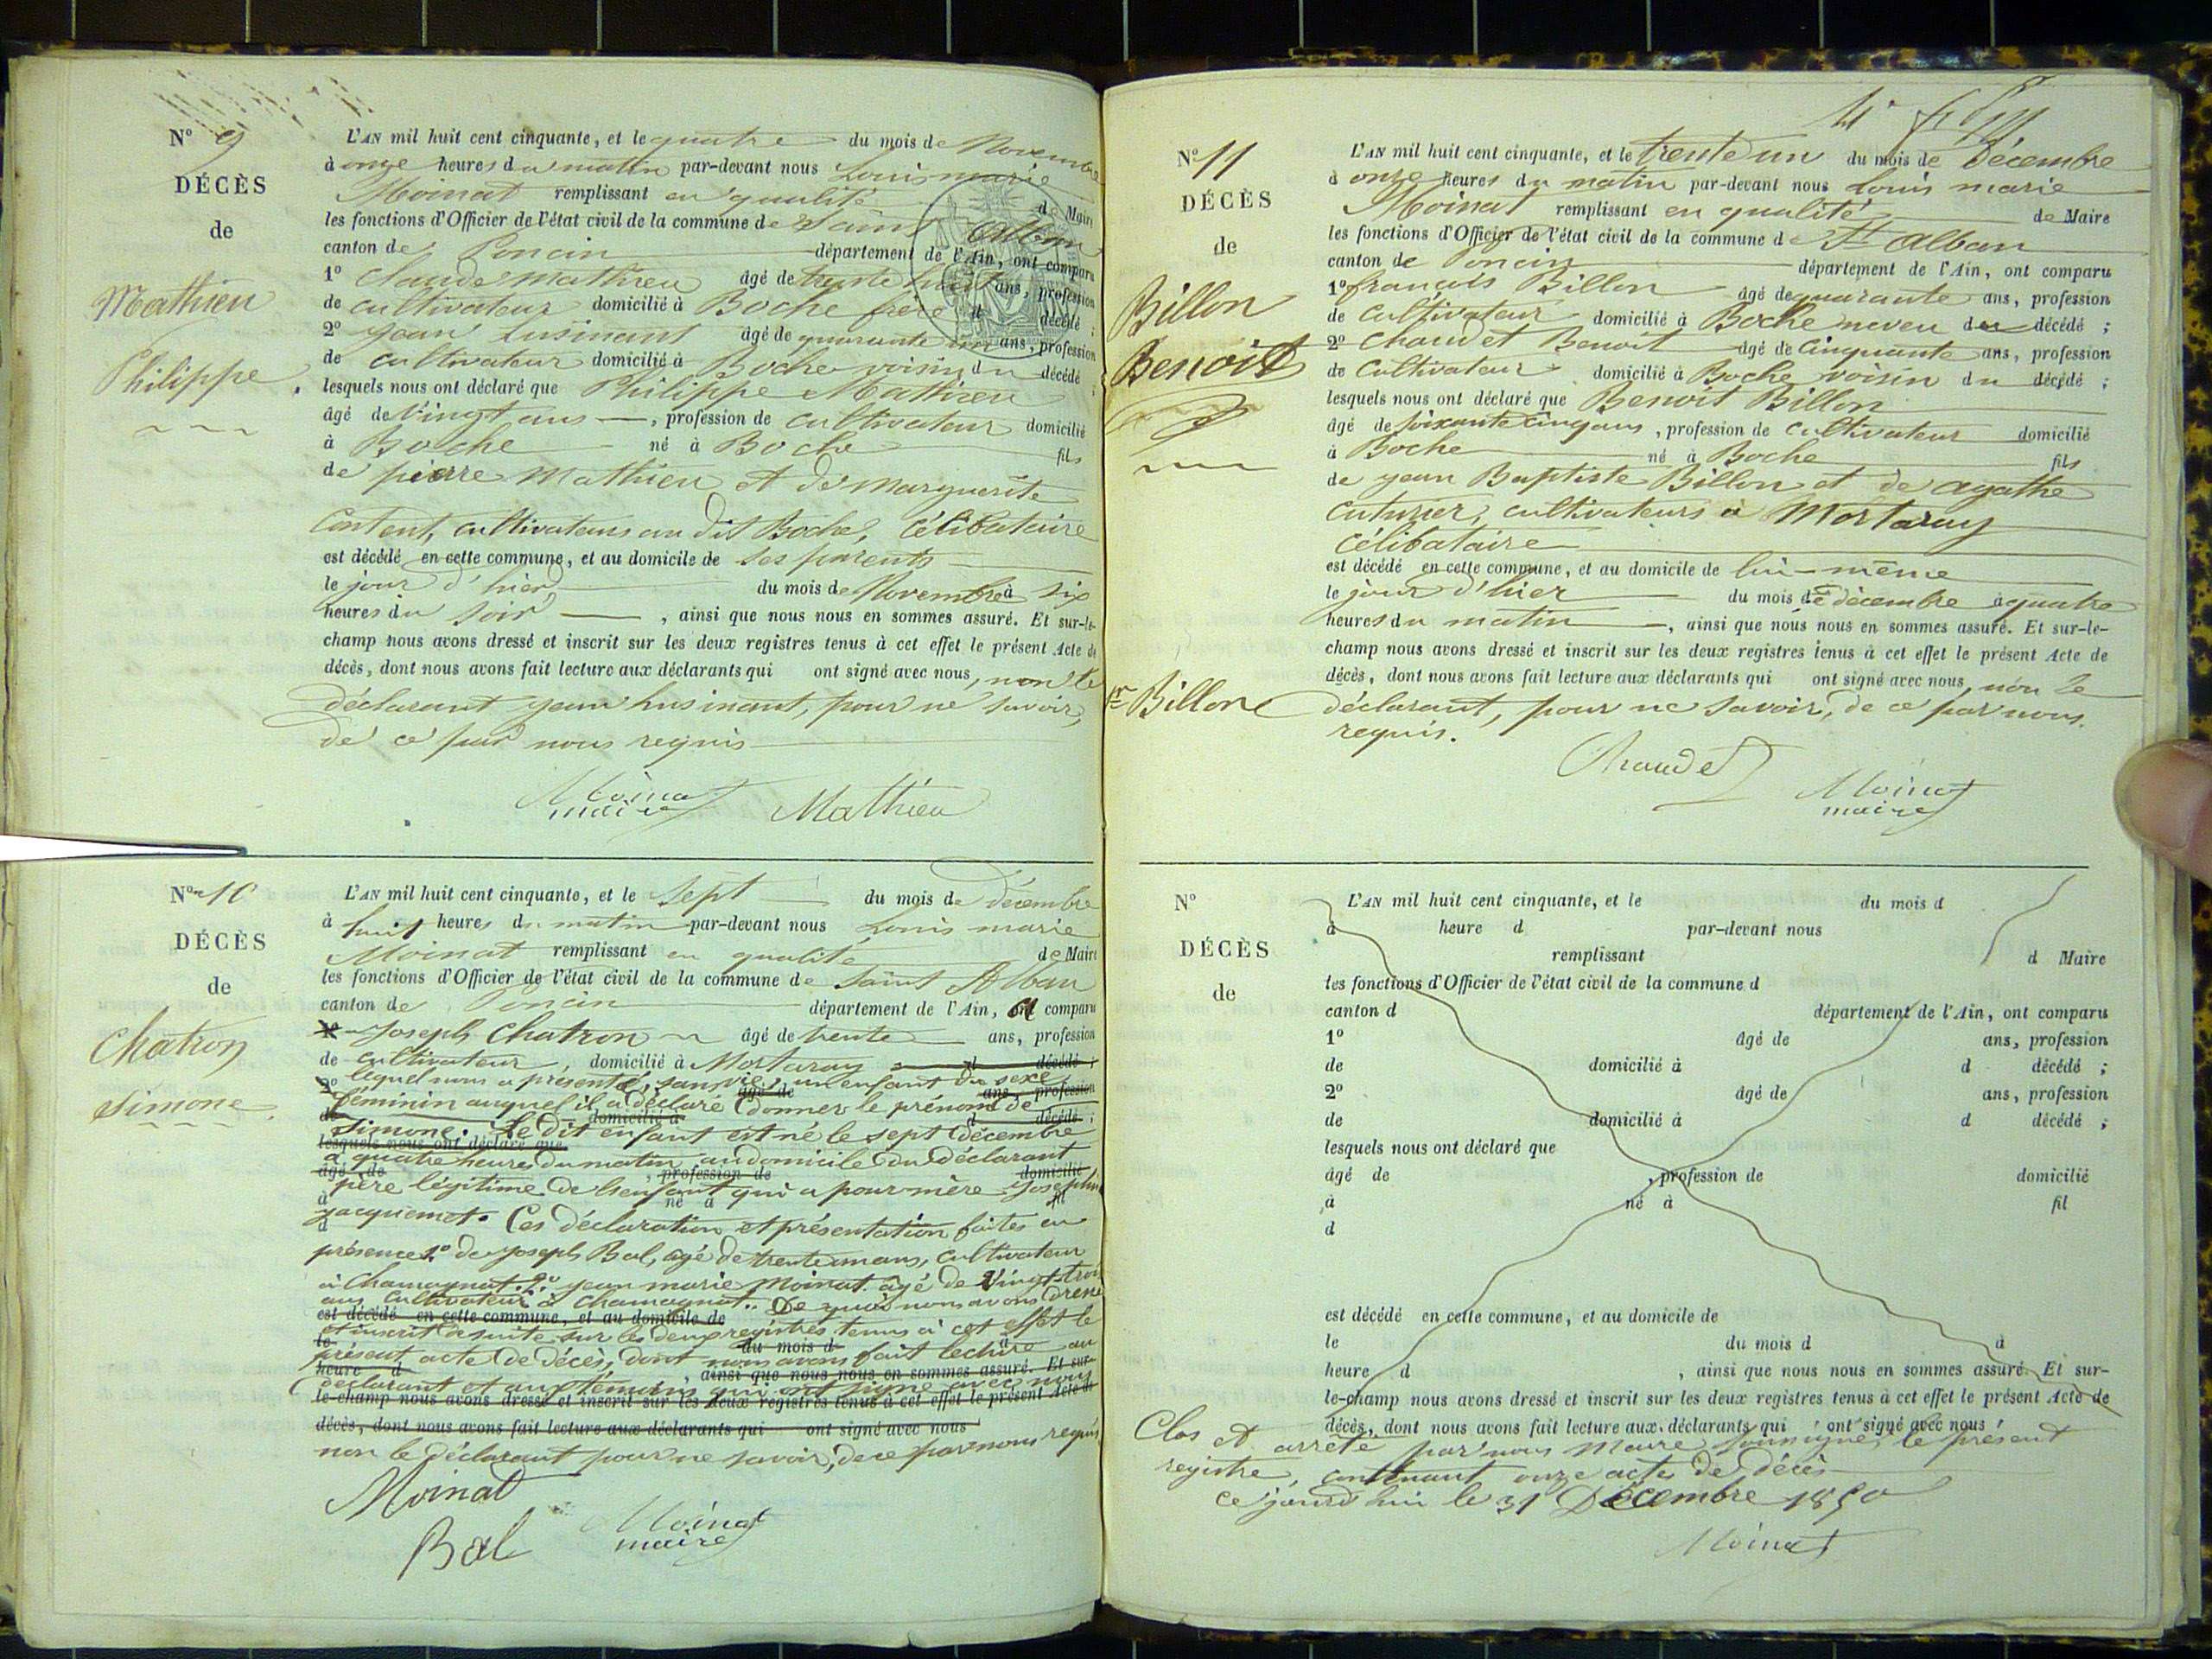 N° 9
DÉCÈS
de
Mathieu
Philippe.
L'AN mil huit cent cinquante, et le quatre du mois de Novembre
à onze heures du matin par-devant nous Louis marie
Moinat remplissant en qualité de Maire
les fonctions d'Officier de l'état civil de la commune de Saint Alban
canton de Poncin département de l'Ain, ont comparu
1° Claude Mathieu âgé de trente huit ans, profession
de cultivateur domicilié à Boche frère d décédé ;
2° jean Lusinant âgé de quarante un ans, profession
de cultivateur domicilié à Boche voisin du décédé ;
lesquels nous ont déclaré que Philippe Mathieu
âgé de vingt ans , profession de cultivateur domicilié
à Boche né à Boche fils
de pierre Mathieu et de Marguerite
Content, cultivateurs au dit Boche, célibataire
est décédé en cette commune, et au domicile de ses parents
le jour d'hier du mois de Novembre à six
heures du soir , ainsi que nous nous en sommes assuré. Et sur-le-
champ nous avons dressé et inscrit sur les deux registres tenus à cet effet le présent Acte de
décès, dont nous avons fait lecture aux déclarants qui ont signé avec nous, non le
déclarant jean Lusinant, pour ne savoir,
de ce par nous requis
Moinat
maire
Mathieu
N° 10
DÉCÈS
de
Chatron
Simone.
L'AN mil huit cent cinquante, et le sept du mois de décembre
à huit heures du matin par-devant nous Louis marie
Moinat remplissant en qualité de Maire
les fonctions d'Officier de l'état civil de la commune de Saint Alban
canton de Poncin département de l'Ain, a comparu
Joseph Chatron âgé de trente ans, profession
de cultivateur, domicilié à Mortaray d décédé ;
lequel nous a présenté, sans vie, un enfant du sexe
2° âgé de ans, profession
féminin auquel il a déclaré donner le prénom de
de domicilié à d décédé ;
Simone. Le dit enfant est né le sept décembre
lesquels nous ont déclaré que
à quatre heures du matin au domicile du déclarant
âgé de , profession de domicilié
père légitime de l'enfant qui a pour mère Josephine
à né à fil
jacquemet. Ces déclaration et présentation faites en
d
présence 1° de joseph Bal, âgé de trente un ans, cultivateur
à Chamagnat. 2° jean marie Moinat âgé de vingt-trois
ans cultivateur à Chamagnat. De quoi nous avons dressé
est décédé en cette commune, et au domicile de
et inscrit de suite sur les deux registres tenus à cet effet le
le du mois d à
présent acte de décès, dont nous avons fait lecture au
heure d , ainsi que nous nous en sommes assuré. Et sur-
déclarant et aux témoins qui ont signé avec nous
le-champ nous avons dressé et inscrit sur les deux registres tenus à cet effet le présent Acte de
décès, dont nous avons fait lecture aux déclarants qui ont signé avec nous
non le déclarant pour ne savoir, de ce par nous requis
Moinat
Bal
Moinat
maire
N° 11
DÉCÈS
de
Billon
Benoit
L'AN mil huit cent cinquante, et le trente un du mois de décembre
à onze heures du matin par-devant nous Louis marie
Moinat remplissant en qualité de Maire
les fonctions d'Officier de l'état civil de la commune d St Alban
canton de Poncin département de l'Ain, ont comparu
1° françois Billon âgé de quarante ans, profession
de cultivateur domicilié à Boche neveu du décédé ;
2° Chaudet Benoit âgé de cinquante ans, profession
de cultivateur domicilié à Boche voisin du décédé ;
lesquels nous ont déclaré que Benoit Billon
âgé de soixante cinq ans , profession de cultivateur domicilié
à Boche né à Boche fils
de jean Baptiste Billon et de agathe
cuturier, cultivateurs à Mortaray
célibataire
est décédé en cette commune, et au domicile de lui-même
le jour d'hier du mois de décembre à quatre
heures du matin , ainsi que nous nous en sommes assuré. Et sur-le-
champ nous avons dressé et inscrit sur les deux registres tenus à cet effet le présent Acte de
décès, dont nous avons fait lecture aux déclarants qui ont signé avec nous, non le
Billon déclarant, pour ne savoir, de ce par nous
requis.
Chaudet
Moinat
maire
N°
DÉCÈS
de
L'AN mil huit cent cinquante, et le du mois d
à heure d par-devant nous
remplissant d Maire
les fonctions d'Officier de l'état civil de la commune d
canton d département de l'Ain, ont comparu
1° âgé de ans, profession
de domicilié à d décédé ;
2° âgé de ans, profession
de domicilié à d décédé ;
lesquels nous ont déclaré que
âgé de , profession de domicilié
à né à fil
d
est décédé en cette commune, et au domicile de
le du mois d à
heure d , ainsi que nous nous en sommes assuré. Et sur-
le-champ nous avons dressé et inscrit sur les deux registres tenus à cet effet le présent Acte de
décès, dont nous avons fait lecture aux déclarants qui ont signé avec nous
Clos et arrêté par nous Maire soussigné le présent
registre, contenant onze actes de décès
ce jourd'hui le 31 Décembre 1850
Moinat